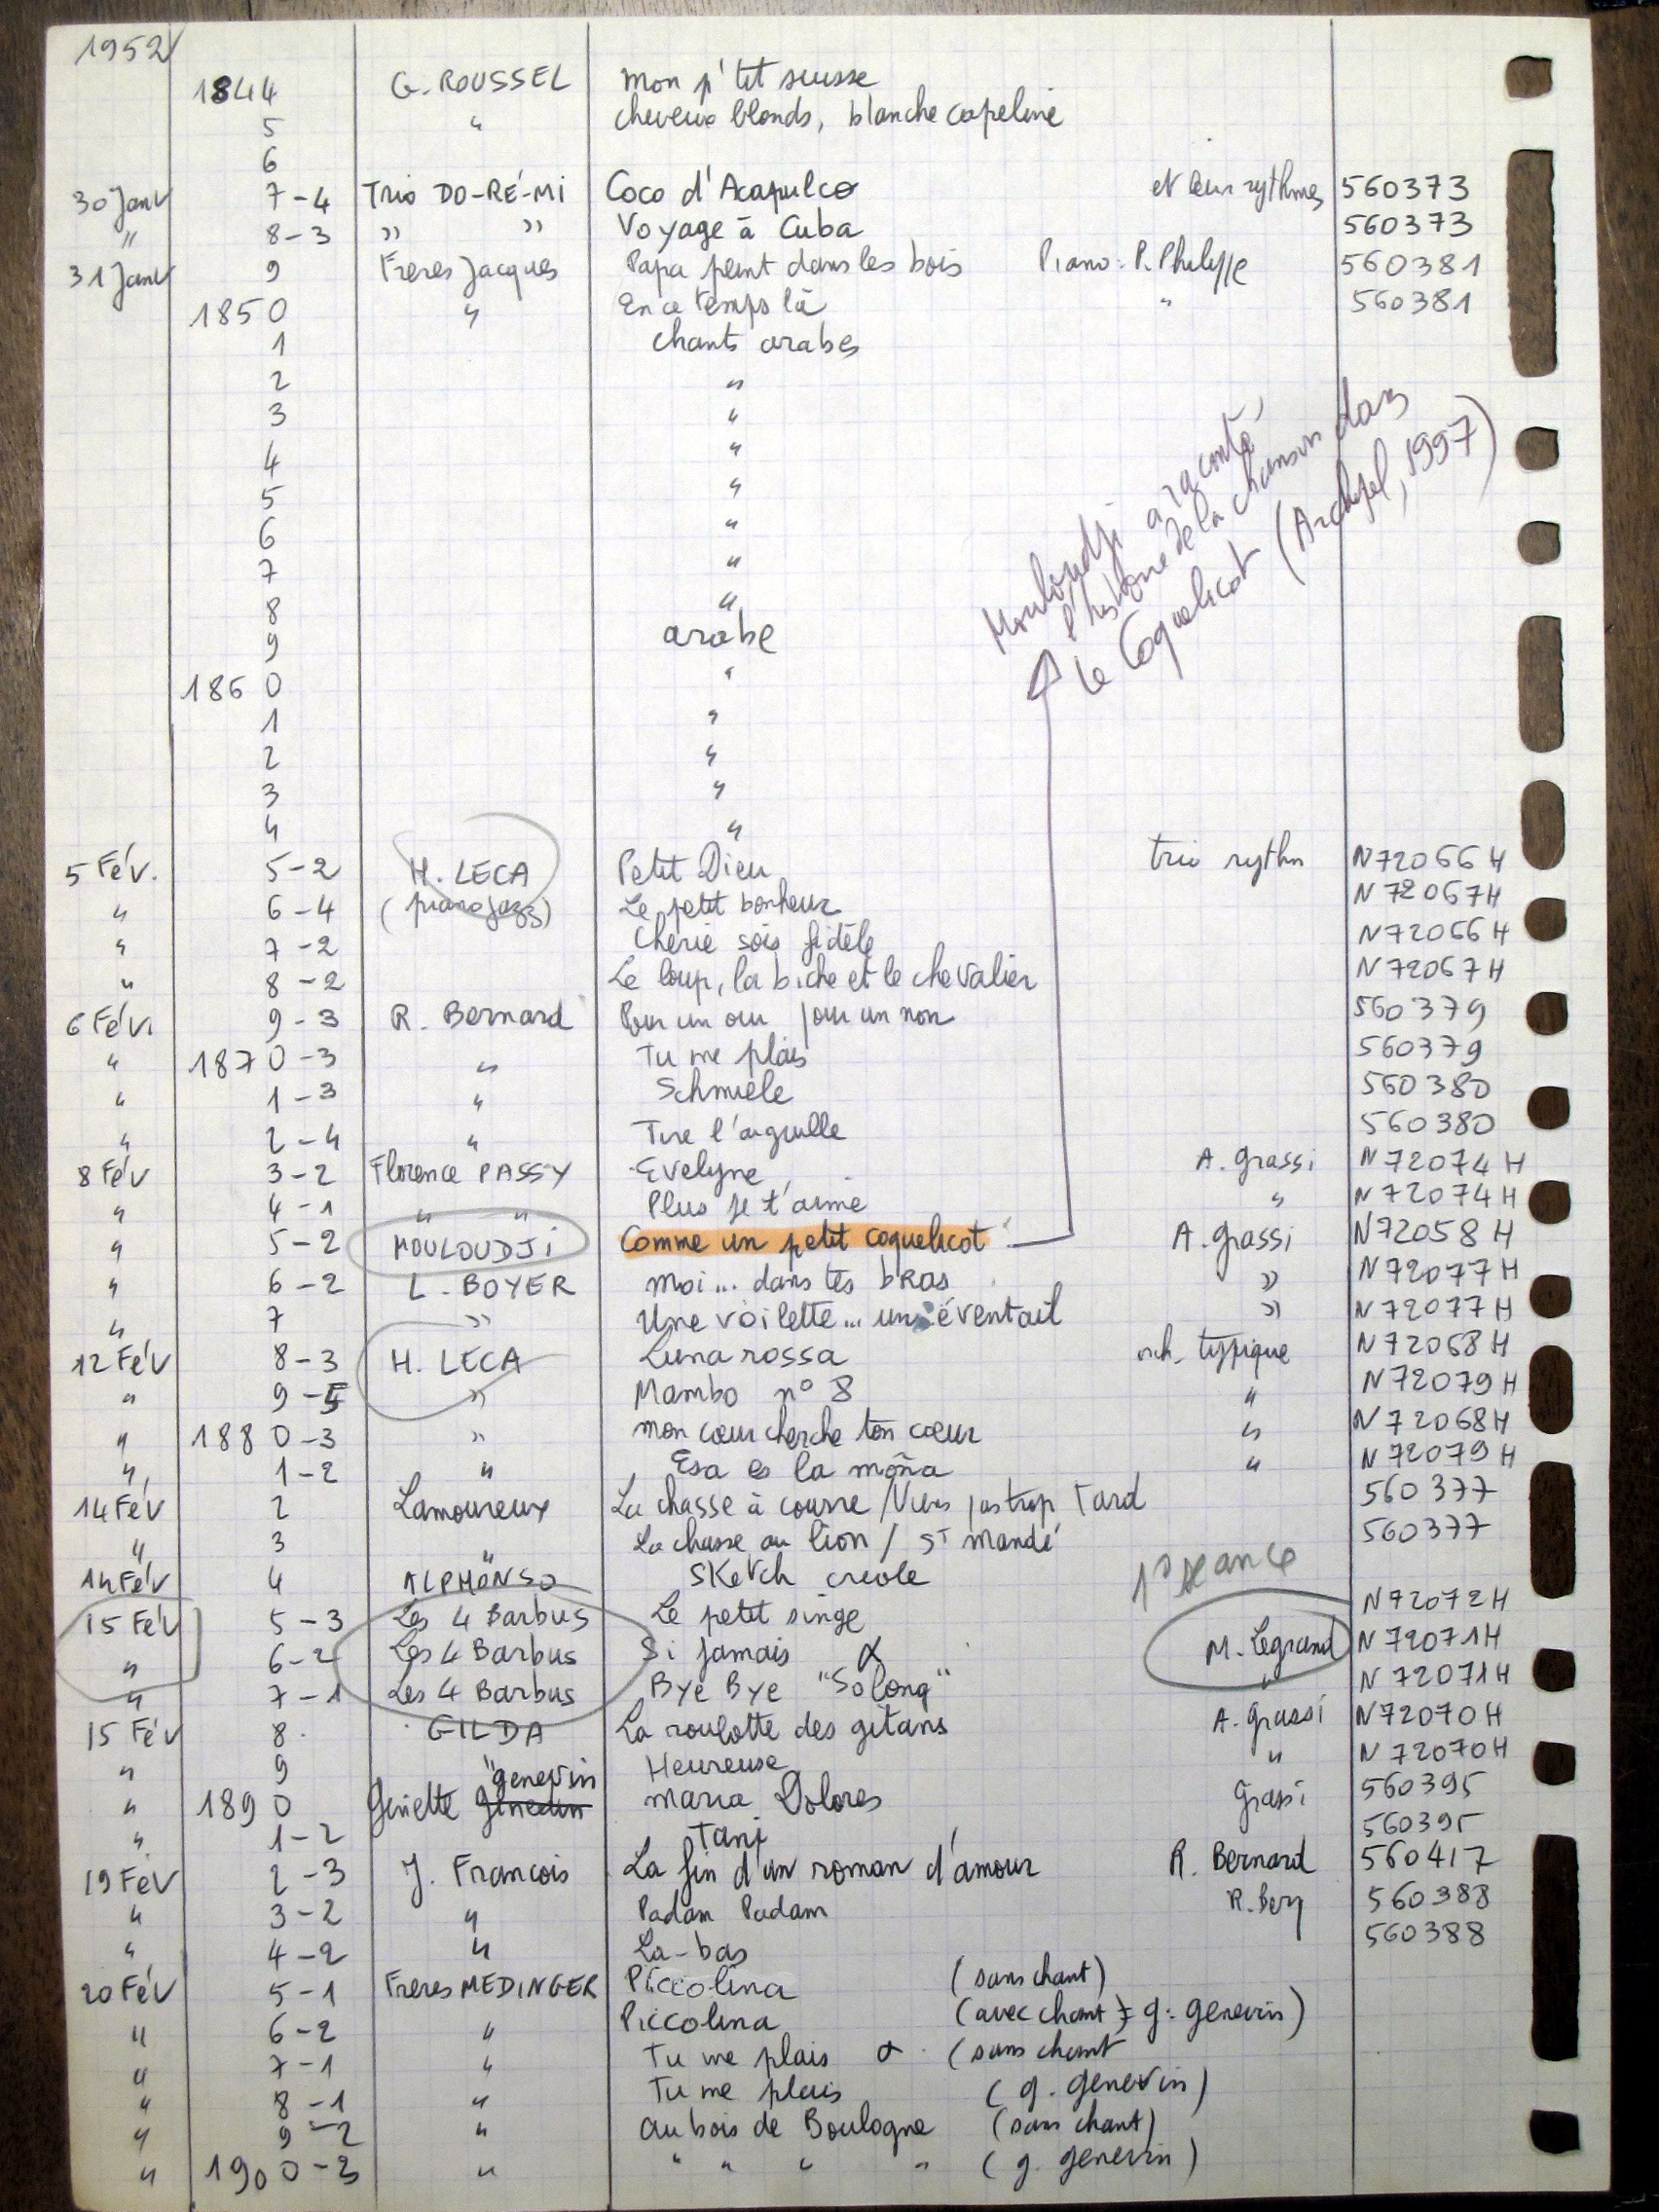 1952
1844 G. ROUSSEL mon p'tit suisse
5 " cheveux blonds, blanche capeline
6
30 Janv 7-4 Trio DO-RÉ-Mi Coco d'Acapulco et leur rythmes 560373
" 8-3 " " Voyage à Cuba 560373
31 Janv 9 Freres Jacques Papa peint dans les bois Piano: P. Philippe 560381
1850 " En ce temps là " 560381
1 chants arabes
2 "
3 "
4 "
5 "
6 "
7 "
8 "
9 arabe
1860 "
1 "
2 "
3 "
4 "
Mouloudji a raconté,
l'histoire de la chanson dans
Le Coquelicot (Archipel, 1997)
5 Fév. 5-2 H. LECA Petit Dieu trio rythm N72066H
" 6-4 (piano jazz) Le petit bonheur N72067H
" 7-2 Chérie sois fidèle N72066H
" 8-2 Le loup, la biche et le chevalier N72067H
6 Fév. 9-3 R. Bernard Pour un oui pour un non 560379
" 1870-3 " Tu me plais 560379
" 1-3 " Schmiele 560380
" 2-4 " Tire l'aiguille 560380
8 Fév 3-2 Florence PASSY Evelyne A. Grassi N72074H
" 4-1 " " Plus je t'aime " N72074H
" 5-2 MOULOUDJi Comme un petit coquelicot A. Grassi N72058H
" 6-2 L. BOYER moi... dans tes bras " N72077H
" 7 " Une voilette... un éventail " N72077H
12 Fév 8-3 H. LECA Luna rossa orch. typique N72068H
" 9-5 " Mambo n° 8 " N72079H
" 1880-3 " mon cœur cherche ton cœur " N72068H
" 1-2 " Esa es la moña " N72079H
14 Fév 2 Lamoureux La chasse à courre / Viens pas trop Tard 560377
" 3 " La chasse au lion / St mandé 560377
14 Fév 4 ALPHONSO Sketch creole
1° séance
15 Fév 5-3 Les 4 Barbus Le petit singe N72072H
" 6-2 Les 4 Barbus Si jamais α M. Legrand N72071H
" 7-1 Les 4 Barbus Bye Bye "So long" " N72071H
15 Fév 8 GILDA La roulotte des gitans A. Grassi N72070H
" 9 " Heureuse " N72070H
" 1890 Ginette Genevin Maria Dolores Grassi 560395
" 1-2 Tani 560395
19 Fév 2-3 J. Francois La fin d'un roman d'amour R. Bernard 560417
" 3-2 " Padam Padam R. Bern 560388
" 4-2 " La-bas 560388
20 Fév 5-1 Freres MEDINGER Piccolina (sans chant)
" 6-2 " Piccolina (avec chant = g. genevin)
" 7-1 " Tu me plais α (sans chant
" 8-1 " Tu me plais (g. genevin)
" 9-2 " Au bois de Boulogne (sans chant)
" 1900-3 " " " " " (g. genevin)